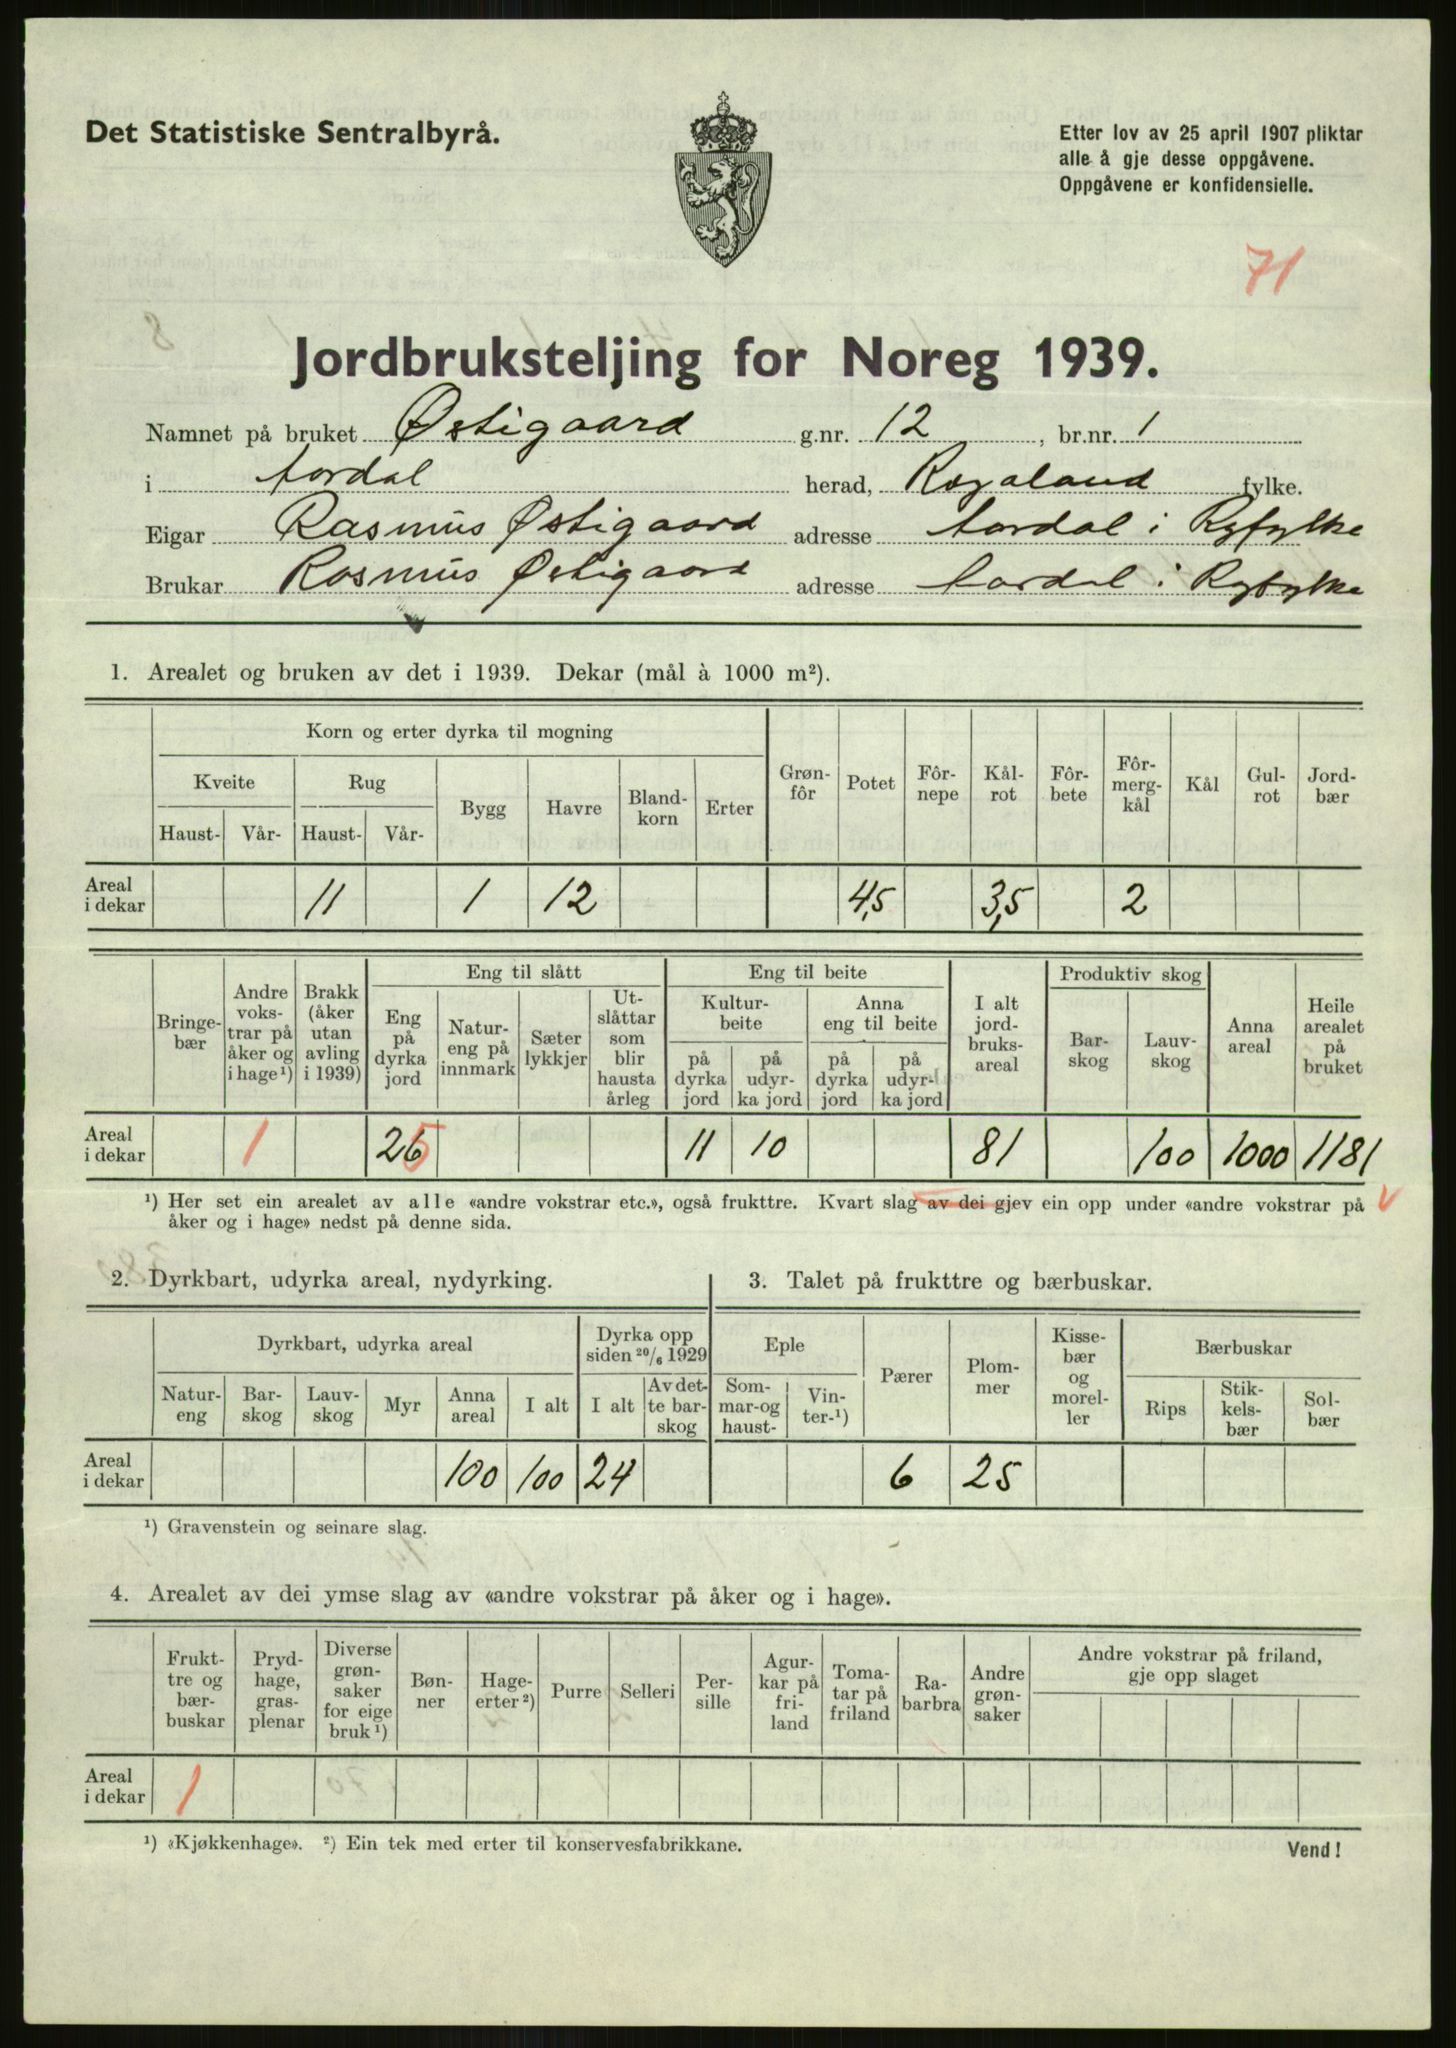 Det Statistiske Sentralbyrå.
Etter lov av 25 april 1907 pliktar
alle å gje desse oppgåvene.
Oppgåvene er konfidensielle.
71
Jordbruksteljing for Noreg 1939.
Namnet på bruket Østigaard g.nr. 12, br.nr. 1
i Aardal herad, Rogaland fylke.
Eigar Rasmus Østigaard adresse Aardal i Ryfylke
Brukar Rasmus Østigaard adresse Aardal i Ryfylke
1. Arealet og bruken av det i 1939. Dekar (mål à 1000 m²).
Korn og erter dyrka til mogning
Kveite Rug
Haust- Vår- Haust- Vår-
Bygg Havre Bland-korn Erter Grøn-fôr Potet Fôr-nepe Kål-rot Fôr-bete Fôr-merg-kål Kål Gul-rot Jord-bær
Areal i dekar 11 1 12 4,5 3,5 2
Eng til slått Eng til beite Produktiv skog
Kultur-beite Anna eng til beite
Bringe-bær Andre voks-trar på åker og i hage¹) Brakk (åker utan avling i 1939) Eng på dyrka jord Natur-eng på innmark Sæter lykkjer Ut-slåttar som blir hausta årleg på dyrka jord på udyr-ka jord på dyrka jord på udyr-ka jord I alt jord-bruks-areal Bar-skog Lauv-skog Anna areal Heile arealet på bruket
Areal i dekar 1 265 11 10 81 100 1000 1181
¹) Her set ein arealet av alle «andre vokstrar etc.», også frukttre. Kvart slag av dei gjev ein opp under «andre vokstrar på
åker og i hage» nedst på denne sida.
2. Dyrkbart, udyrka areal, nydyrking.
Dyrkbart, udyrka areal Dyrka opp siden 20/6 1929
Natur-eng Bar-skog Lauv-skog Myr Anna areal I alt I alt Av det-te bar-skog
Areal i dekar 100 100 24
3. Talet på frukttre og bærbuskar.
Eple Bærbuskar
Som-mar-og haust- Vin-ter-¹) Pærer Plom-mer Kisse-bær og morel-ler Rips Stik-kels-bær Sol-bær
6 25
¹) Gravenstein og seinare slag.
4. Arealet av dei ymse slag av «andre vokstrar på åker og i hage».
Frukt-tre og bær-buskar Pryd-hage, gras-plenar Diverse grøn-saker for eige bruk¹) Bøn-ner Hage-erter²) Purre Selleri Per-sille Agur-kar på fri-land Toma-tar på friland Ra-barbra Andre grøn-saker Andre vokstrar på friland, gje opp slaget
Areal i dekar 1
¹) «Kjøkkenhage». ²) Ein tek med erter til konservesfabrikkane.
Vend!